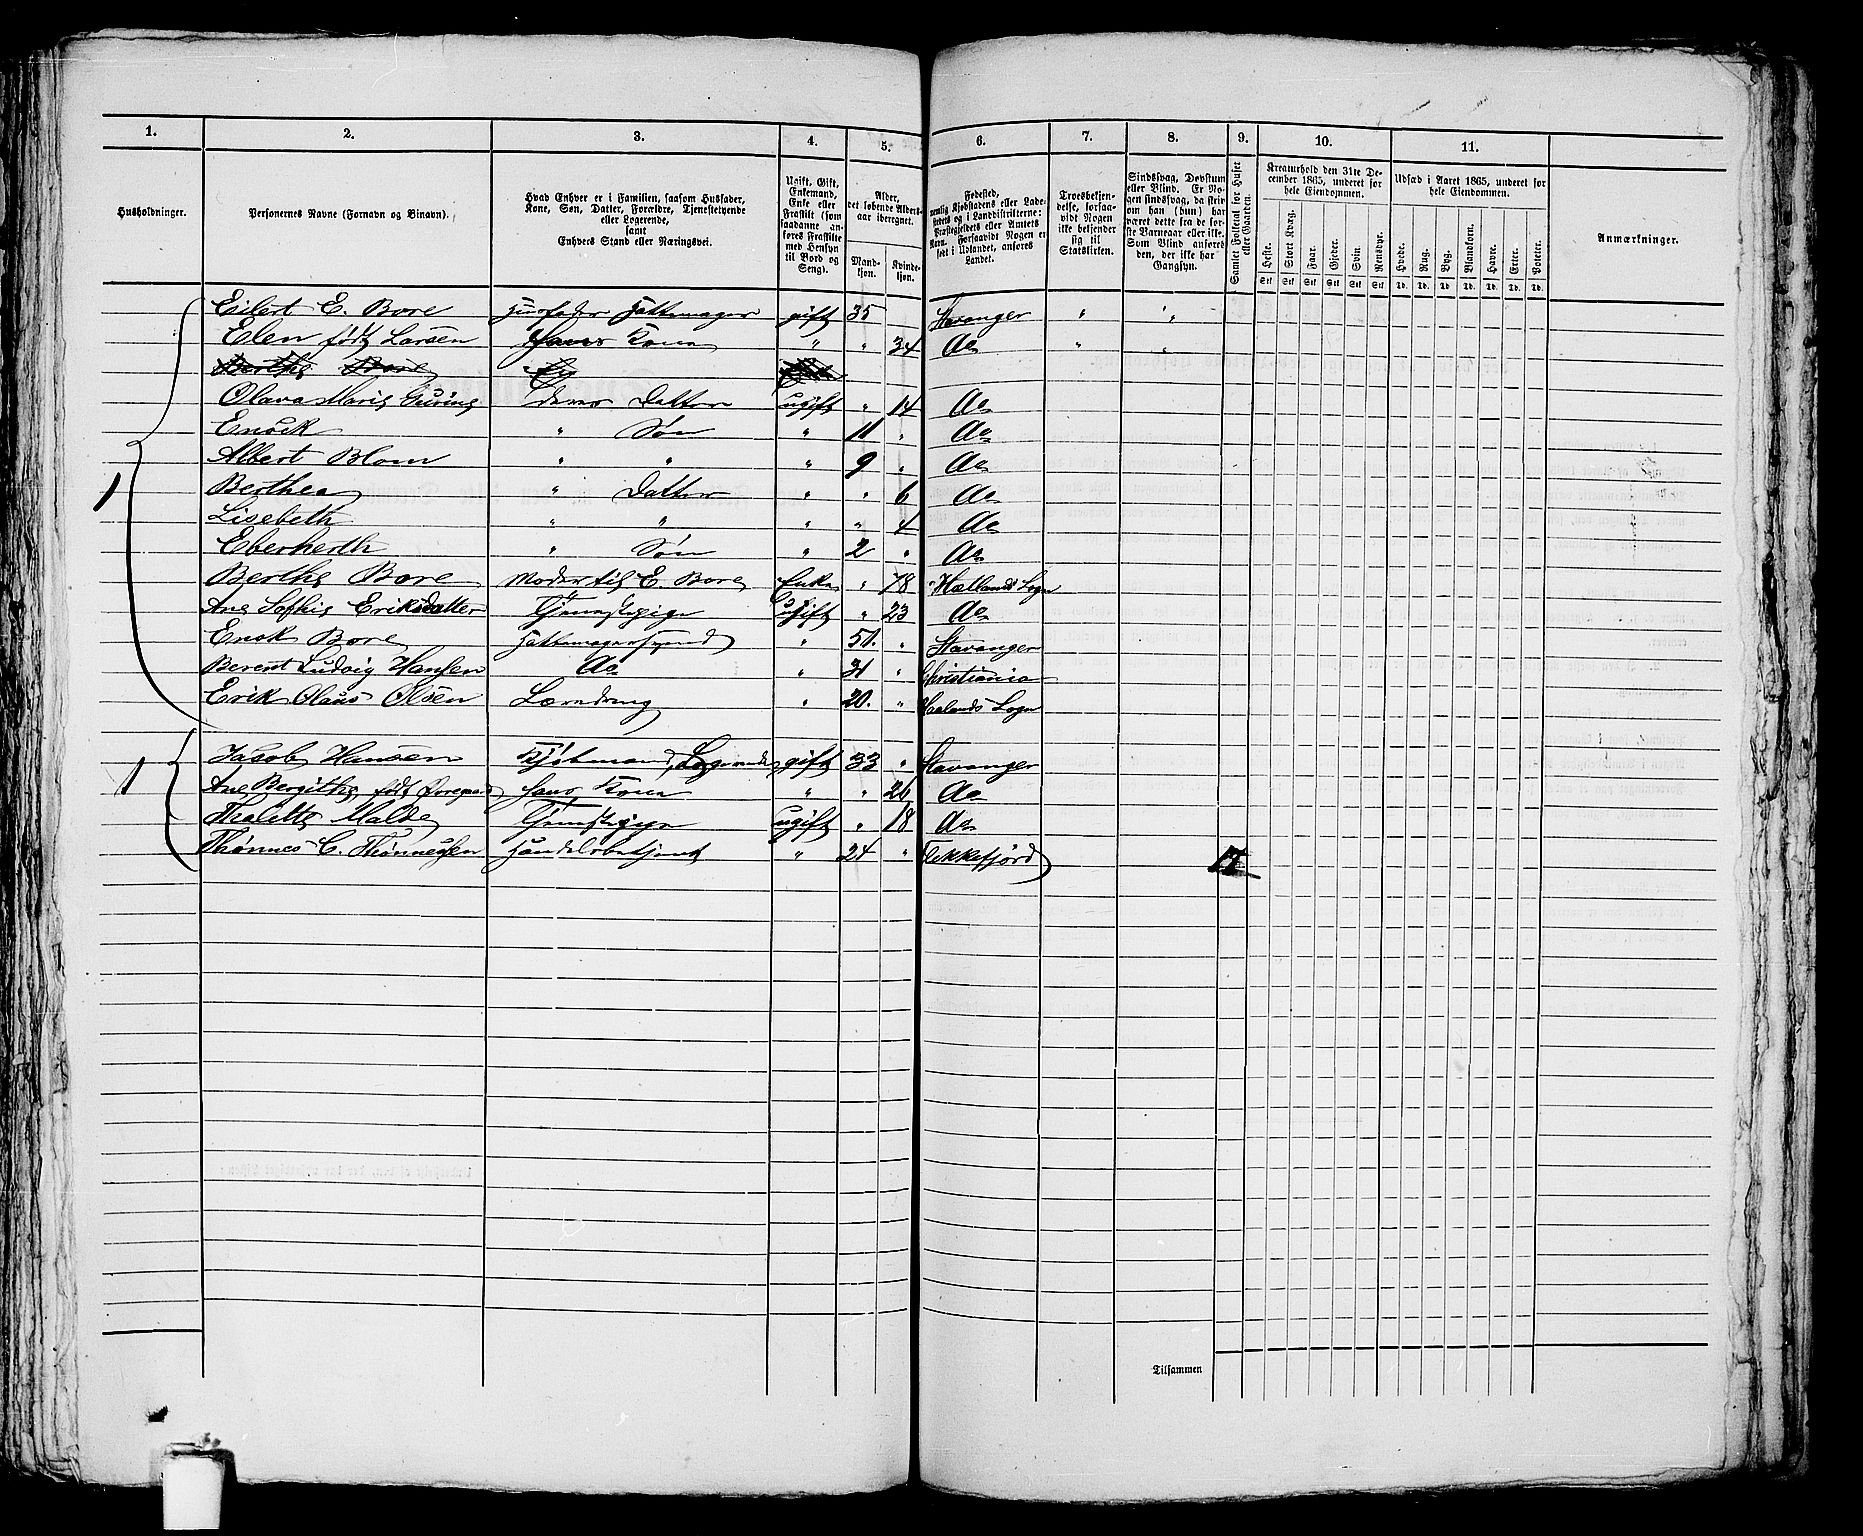 1. 2. 3. 4. 5. 6. 7. 8. 9. 10. 11.
Husholdninger.
Personernes Navne (Fornavn og Binavn).
Hvad Enhver er i Familien, saasom Husfader,
Kone, Søn, Datter, Forældre, Tjenestetyende
eller Logerende,
samt
Enhvers Stand eller Næringsvei.
Ugift, Gift,
Enkemand,
Enke eller
Fraskilt (som
saadanne an-
føres Fraskilte
med Hensyn
til Bord og
Seng).
Alder,
det løbende Alders-
aar iberegnet.
Mand-
kjøn.
Kvinde-
kjøn.
Fødested,
nemlig Kjøbstadens eller Lade-
stedets og i Landdistrikterne:
Præstegjeldets eller Annexets
Navn. Forsaavidt Nogen er
født i Udlandet, anføres
Landet.
Troesbekjen-
delse, forsaa-
vidt Nogen
ikke bekjender
sig til
Statskirken.
Sindssvag, Døvstum
eller Blind. Er No-
gen sindssvag, da skriv
om han (hun) har
været dette fra de før-
ste Barneaar eller ikke.
Som Blind anføres
den, der ikke har
Gangsyn.
Samlet Folketal for Huset
eller Gaarden.
Kreaturhold den 31te De-
cember 1865, underet for
hele Eiendommen.
Heste. Stort Kvæg. Faar. Gjeder. Svin. Rensdyr.
Stk Stk Stk Stk Stk Stk
Udsæd i Aaret 1865, underet for
hele Eiendommen.
Hvede. Rug. Byg. Blandkorn. Havre. Erter. Poteter.
Td. Td. Td. Td. Td. Td. Td.
Anmærkninger.
Eilert E. Bore Husfader Hattemager gift 35 Stavanger " "
Elen født Larsen Hans Kone " " 34 do " "
Berthe Bore
Olava Marie deres Datter ugift " 14 do
Enock " Søn " 11 " do
Albert Blom " " " 9 " do
Berthea " Datter " " 6 do
Lisebeth " " " " 4 do
Eberherth " Søn " 2 " do
Berthe Bore Moder til E. Bore Enke " 78 Hællands Sogn
Ane Sofhie Eriksdatter Tjenestepige ugift " 23 do
Enok Bore Hattemagersvend " 51. " Stavanger
Berent Ludvig Hansen do " 31 " Christiania
Erik Olaus Olsen Læredreng " 20. " Haalands Sogn
1
Jacob Hansen Kjøbmand, Logerende gift 33 " Stavanger
Ane Bergitte født Hans Kone " " 26 do
Malde Tjenestepige ugift " 18 do
Thønnes C. Thønnessen Handelsbetjent " 24 " Flekkefjord 17
1
Tilsammen